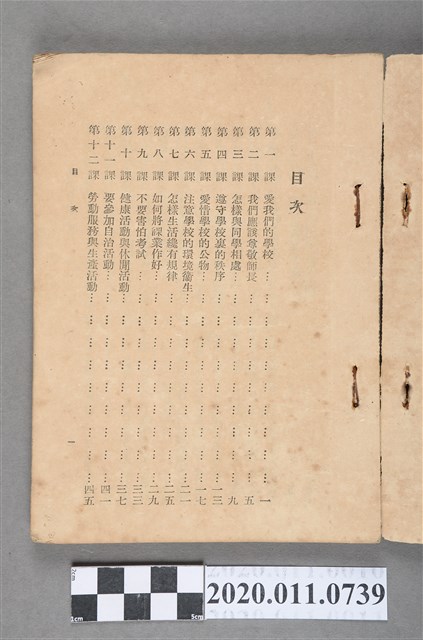 目次
第一課 愛我們的學校……………………………一
第二課 我們應該尊敬師長……………………………五
第三課 怎樣與同學相處……………………………九
第四課 遵守學校裏的秩序……………………………一三
第五課 愛惜學校的公物……………………………一七
第六課 注意學校的環境衞生……………………………二一
第七課 怎樣生活纔有規律……………………………二五
第八課 如何將課業作好……………………………二九
第九課 不要害怕考試……………………………三三
第十課 健康活動與休閒活動……………………………三七
第十一課 要參加自治活動……………………………四一
第十二課 勞動服務與生產活動……………………………四五
目次 一
2cm
1cm 5cm
2020.011.0739